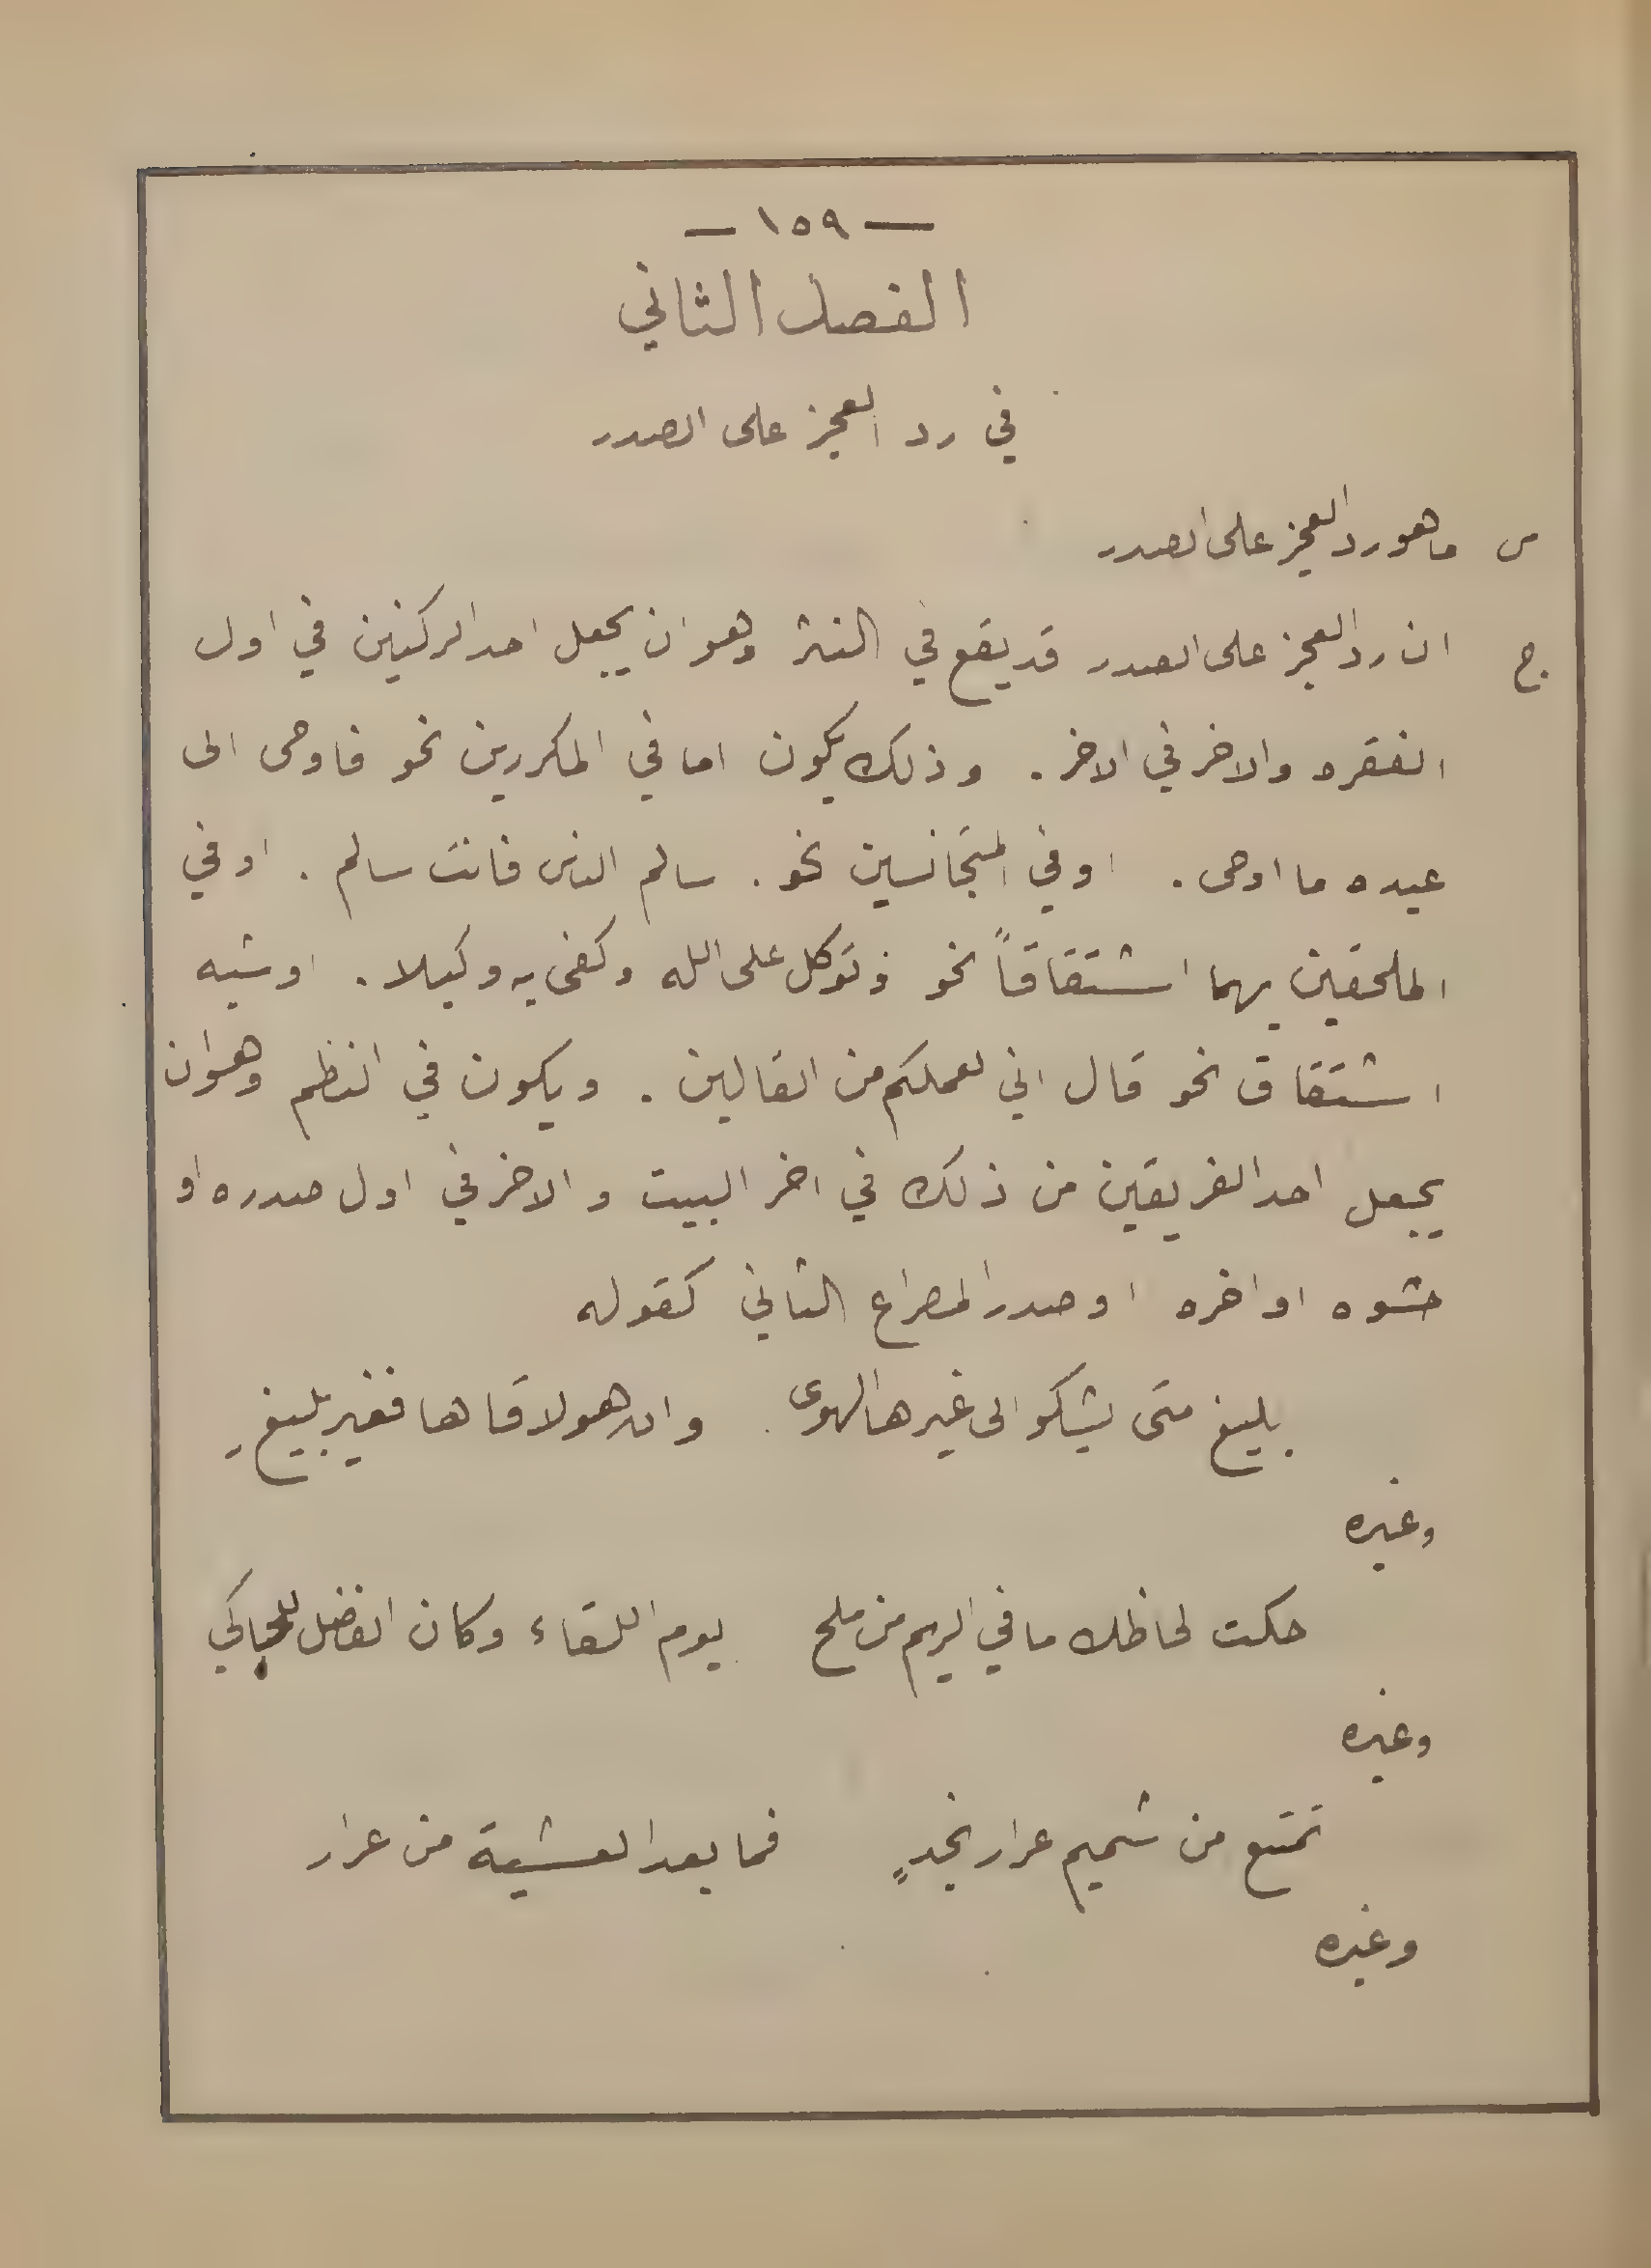 — ١٥٩ —
الفصل الثاني
في رد العجز على الصدر
س ما هو رد العجز على الصدر
ج ان رد العجز على الصدر قد يقع في النثر وهو ان يجعل احد الركنين في اول
الفقره والاخر في الاخر . وذلك يكون اما في المكررين نحو فاوحى الى
عبده ما اوحى . او في المتجانسين نحو . سالم الناس فانت سالم . او في
الملحقين بهما اشتقاقاً نحو وتوكل على الله وكفى به وكيلا . او شبه
اشتقاق نحو قال اني لعملكم من القالين . ويكون في النظم وهو ان
يجعل احد الفريقين من ذلك في اخر البيت والاخر في اول صدره او
حشوه او اخره او صدر المصراع الثاني كقوله
بليغ متى يشكو الى غيرها الهوى . وان هو لاقاها فغير بليغِ
وغيره
حكت لحاظك ما في الريم من ملح يوم اللقاء وكان الفضل للحاكي
وغيره
تمتع من شميم عرار نجدٍ فما بعد العشية من عرار
وغيره